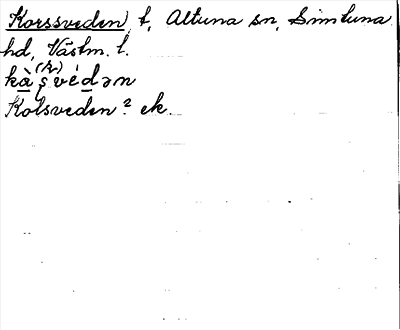 Korssveden, t, Altuna sn, Simtuna
hd, Västm. l.
kà̱(k)s̩vé̱dən
Kolsveden? ek.